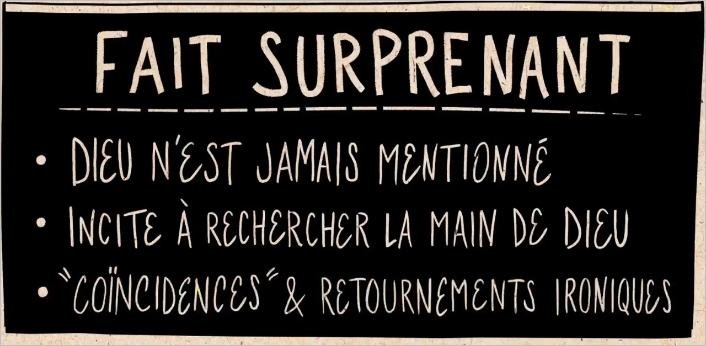 FAIT SURPRENANT
• DIEU N'EST JAMAIS MENTIONNÉ
• INCITE À RECHERCHER LA MAIN DE DIEU
• "COÏNCIDENCES" & RETOURNEMENTS IRONIQUES